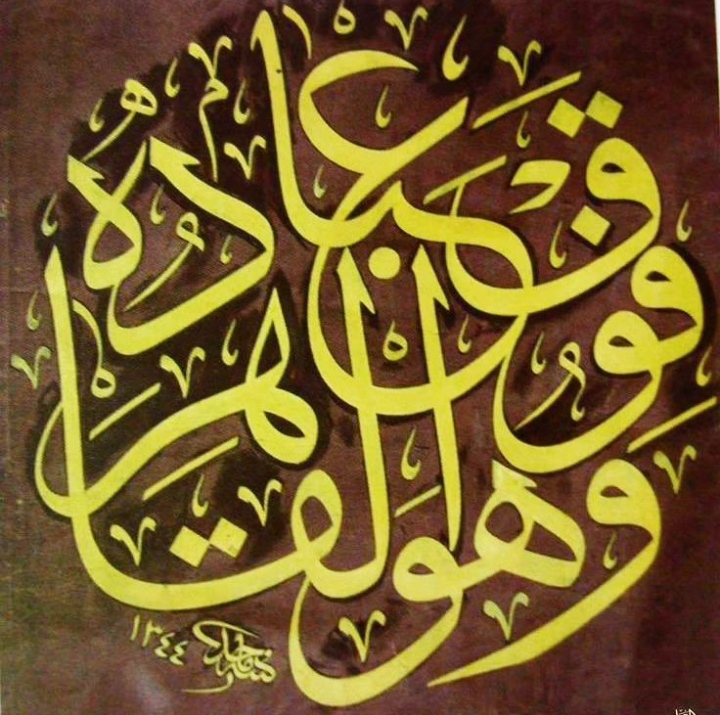 وهو القاهر فوق عباده
١٣٤٤